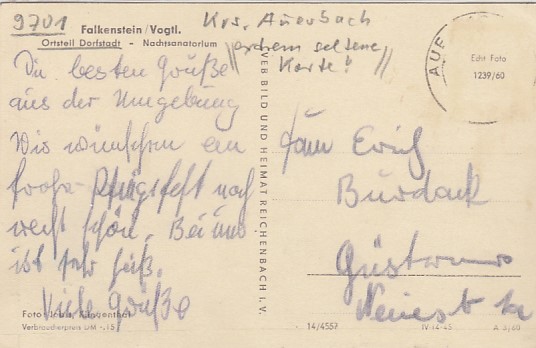 9701
Falkenstein/Vogtl.
Ortsteil Dorfstadt - Nachtsanatorium
Krs. Auerbach
seltene
Karte!
Die besten Grüße
aus der Umgebung
Wir wünschen ein
frohes Pfingstfest noch
recht schön. Bei uns
ist sehr heiß.
Viele Grüße
Verbraucherpreis DM -,15
VEB BILD UND HEIMAT REICHENBACH I. V.
AUE
Echt Foto
1239/60
Fam Erich
Burdack
Güstrow
14/4557
IV-14-45
A 3/60